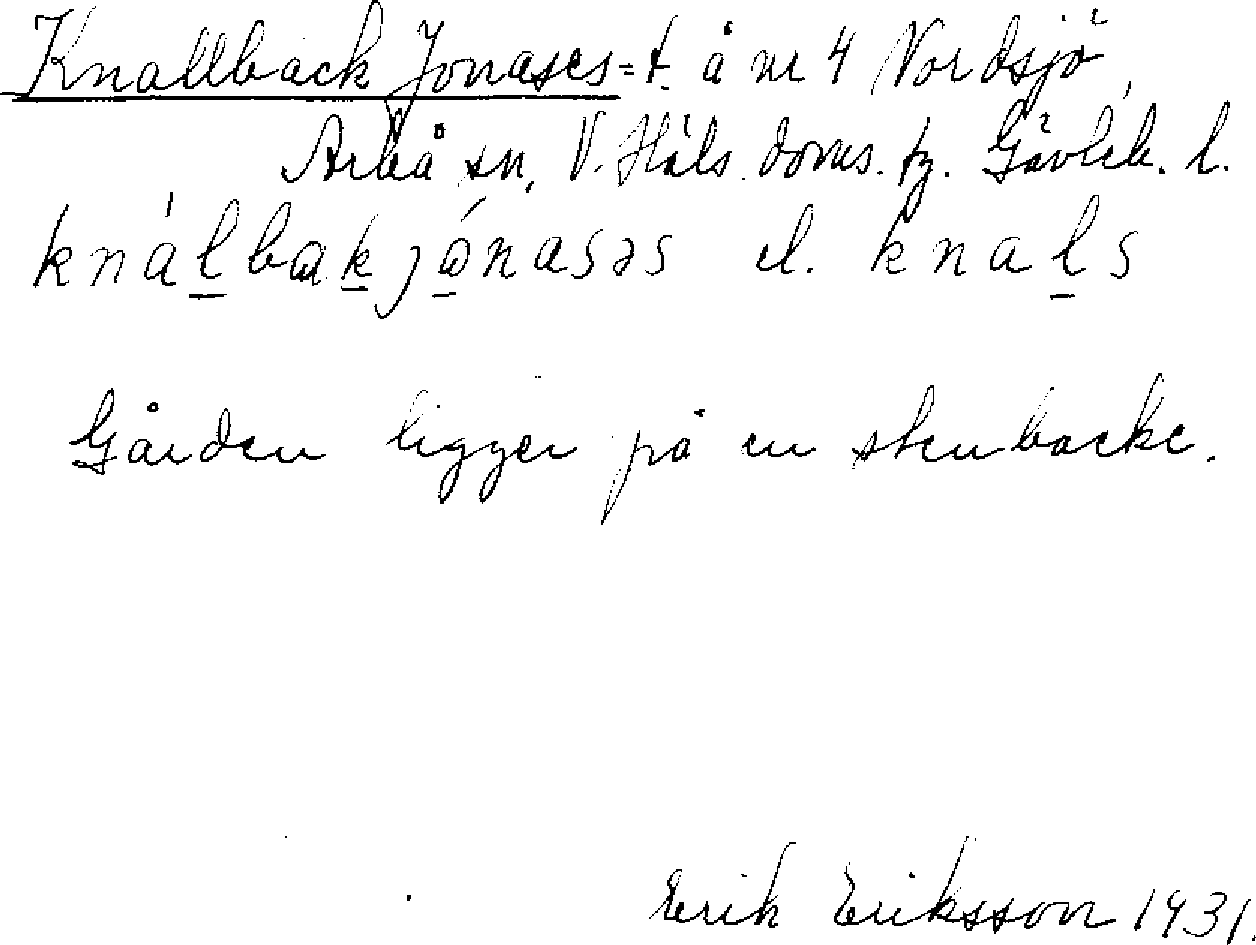 Knallback Jonases = t. å nr 4 Nordsjö,
Arbrå sn, V. Häls. doms. tg. Gävleb. l.
knálbakjónasəs el. knals
Gården ligger på en stenbacke.
Erik Eriksson 1931.